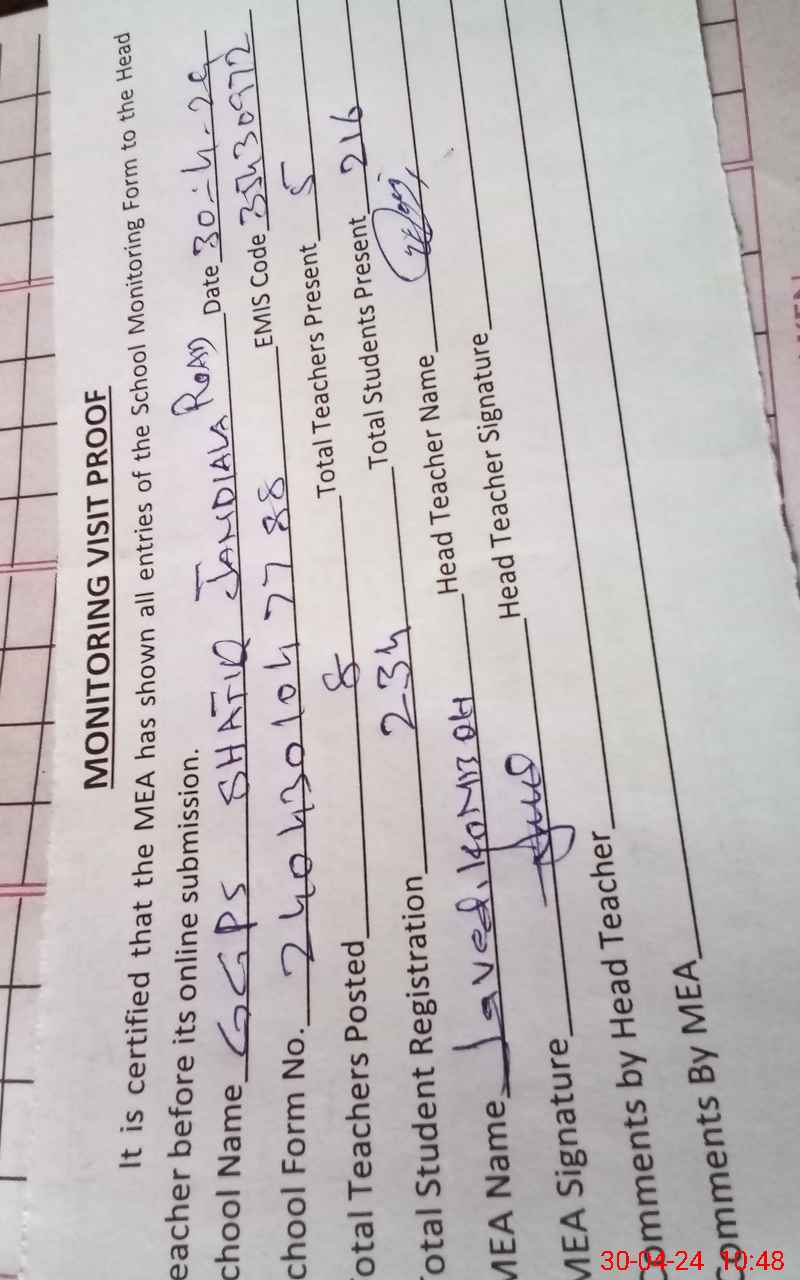 MONITORING VISIT PROOF
It is certified that the MEA has shown all entries of the School Monitoring Form to the Head
eacher before its online submission.
chool Name GGPS SHATIR JANDIALA ROAD Date 30-4-24
chool Form No. 240430104 77 88 EMIS Code 35430972
otal Teachers Posted 8 Total Teachers Present 5
otal Student Registration 234 Total Students Present 216
MEA Name Javed Head Teacher Name
MEA Signature Head Teacher Signature
omments by Head Teacher
omments By MEA
30-04-24 10:48